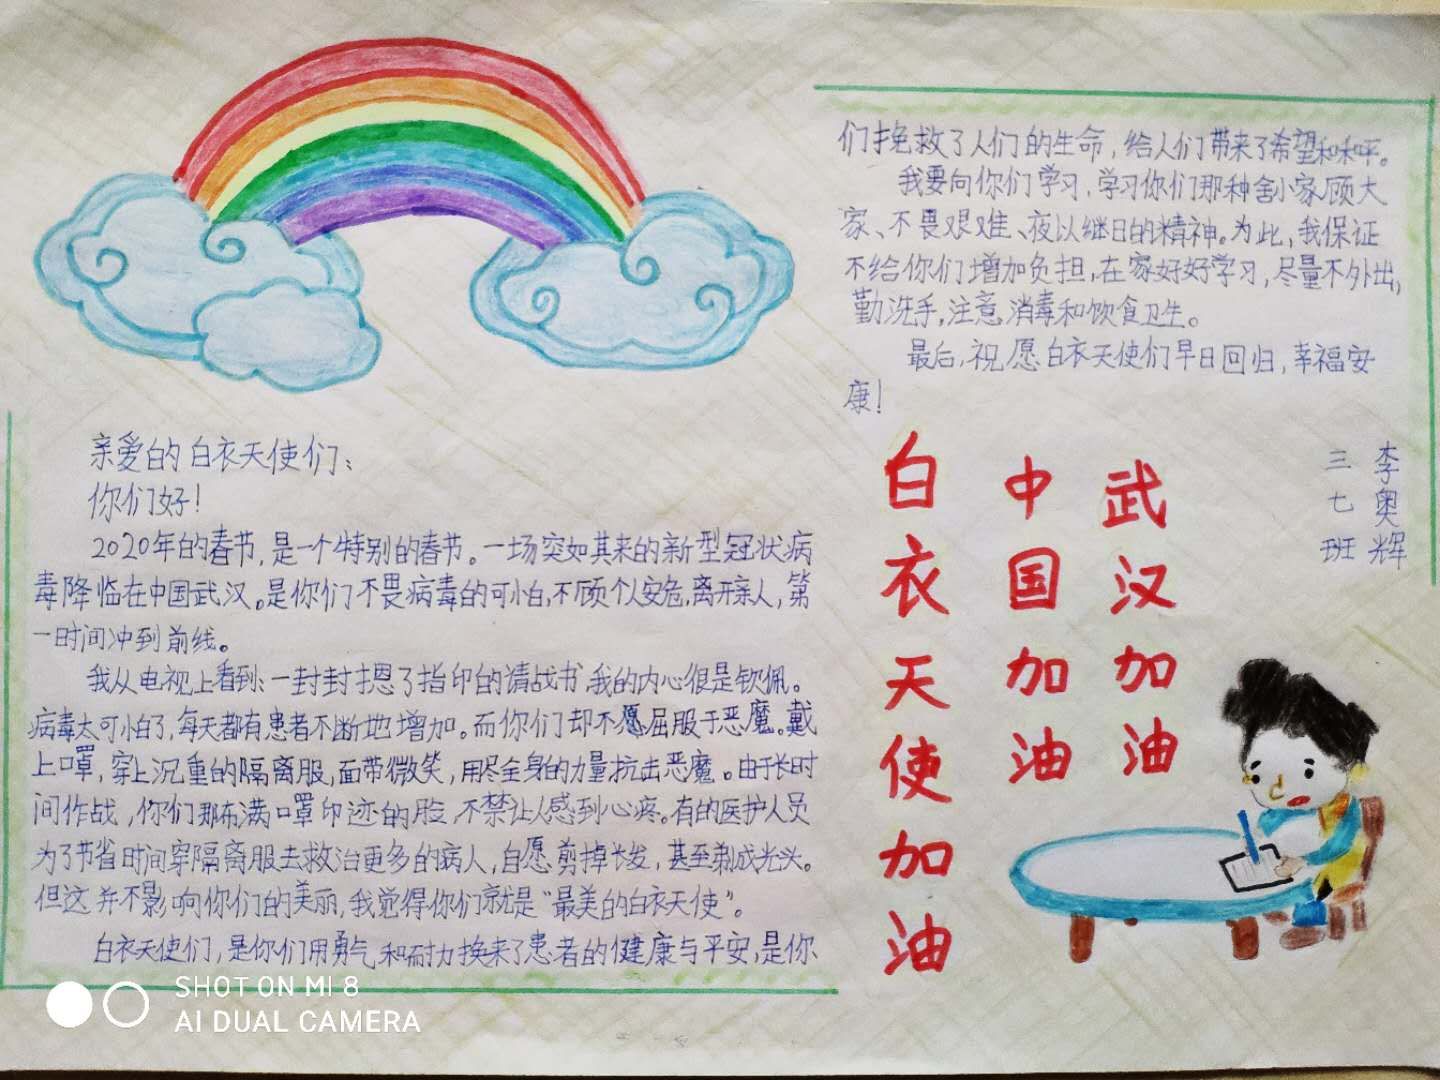 亲爱的白衣天使们：
你们好！
2020年的春节，是一个特别的春节。一场突如其来的新型冠状病
毒降临在中国武汉。是你们不畏病毒的可怕，不顾个人安危，离开亲人，第
一时间冲到前线。
我从电视上看到：一封封摁了指印的请战书，我的内心很是钦佩。
病毒太可怕了，每天都有患者不断地增加。而你们却不愿屈服于恶魔。戴
上口罩，穿上沉重的隔离服，面带微笑，用尽全身的力量抗击恶魔。由于长时
间作战，你们那布满口罩印迹的脸，不禁让人感到心疼。有的医护人员
为了节省时间穿隔离服去救治更多的病人，自愿剪掉长发，甚至剃成光头。
但这并不影响你们的美丽，我觉得你们就是“最美的白衣天使”。
白衣天使们，是你们用勇气和耐力换来了患者的健康与平安，是你
们挽救了人们的生命，给人们带来了希望和和平。
我要向你们学习，学习你们那种舍小家顾大
家、不畏艰难、夜以继日的精神。为此，我保证
不给你们增加负担，在家好好学习，尽量不外出，
勤洗手，注意消毒和饮食卫生。
最后，祝愿白衣天使们早日回归，幸福安
康！
三七班
李奥辉
白衣天使加油
中国加油
武汉加油
SHOT ON MI 8
AI DUAL CAMERA